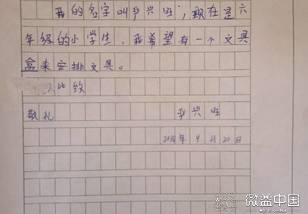 我的名字叫 兴旺,现在是六
年级的小学生,我希望有一个文具
盒来安排文具。
此致
敬礼 兴旺
年 月 日
微益中国